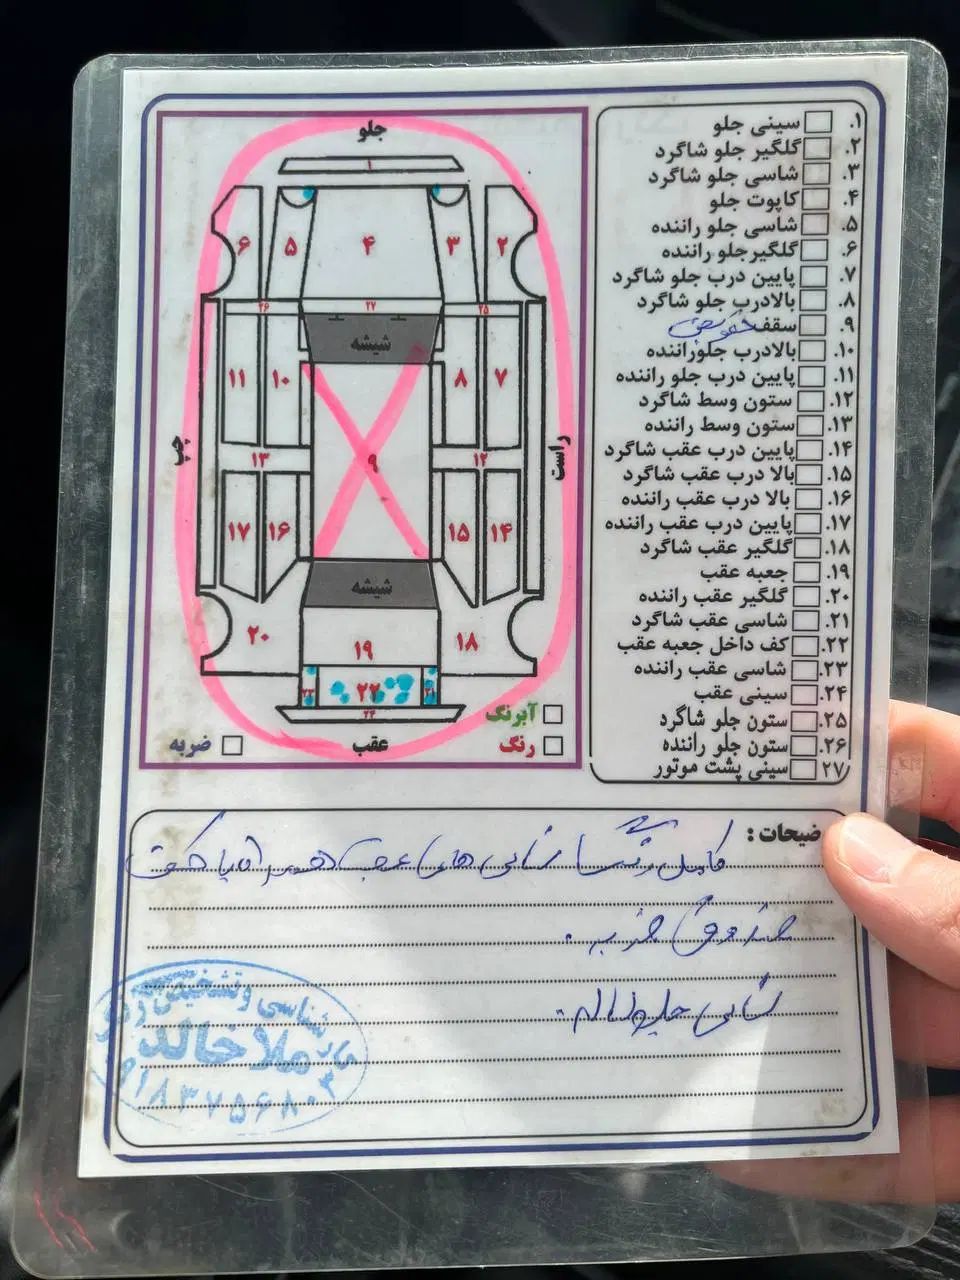 جلو
۱
۶
۵
۴
۳
۲
۲۶
۲۷
۲۵
شیشه
۱۱
۱۰
۹
۸
۷
چپ
راست
۱۳
۱۲
۱۷
۱۶
۱۵
۱۴
شیشه
۲۰
۱۹
۱۸
۲۳
۲۲
۲۱
۲۴
عقب
آبرنگ
رنگ
ضربه
۱. سینی جلو
۲. گلگیر جلو شاگرد
۳. شاسی جلو شاگرد
۴. کاپوت جلو
۵. شاسی جلو راننده
۶. گلگیرجلو راننده
۷. پایین درب جلو شاگرد
۸. بالادرب جلو شاگرد
۹. سقف
۱۰. بالادرب جلوراننده
۱۱. پایین درب جلو راننده
۱۲. ستون وسط شاگرد
۱۳. ستون وسط راننده
۱۴. پایین درب عقب شاگرد
۱۵. بالا درب عقب شاگرد
۱۶. بالا درب عقب راننده
۱۷. پایین درب عقب راننده
۱۸. گلگیر عقب شاگرد
۱۹. جعبه عقب
۲۰. گلگیر عقب راننده
۲۱. شاسی عقب شاگرد
۲۲. کف داخل جعبه عقب
۲۳. شاسی عقب راننده
۲۴. سینی عقب
۲۵. ستون جلو شاگرد
۲۶. ستون جلو راننده
۲۷. سینی پشت موتور
ضیحات :
کامل رنگ شاسی های عقب همراه با کف
صندوق ضربه .
شاسی جلو سالم .
کارشناسی و تشخیص رنگ
ملا خالد
۰۹۱۸۳۷۵۶۸۰۳